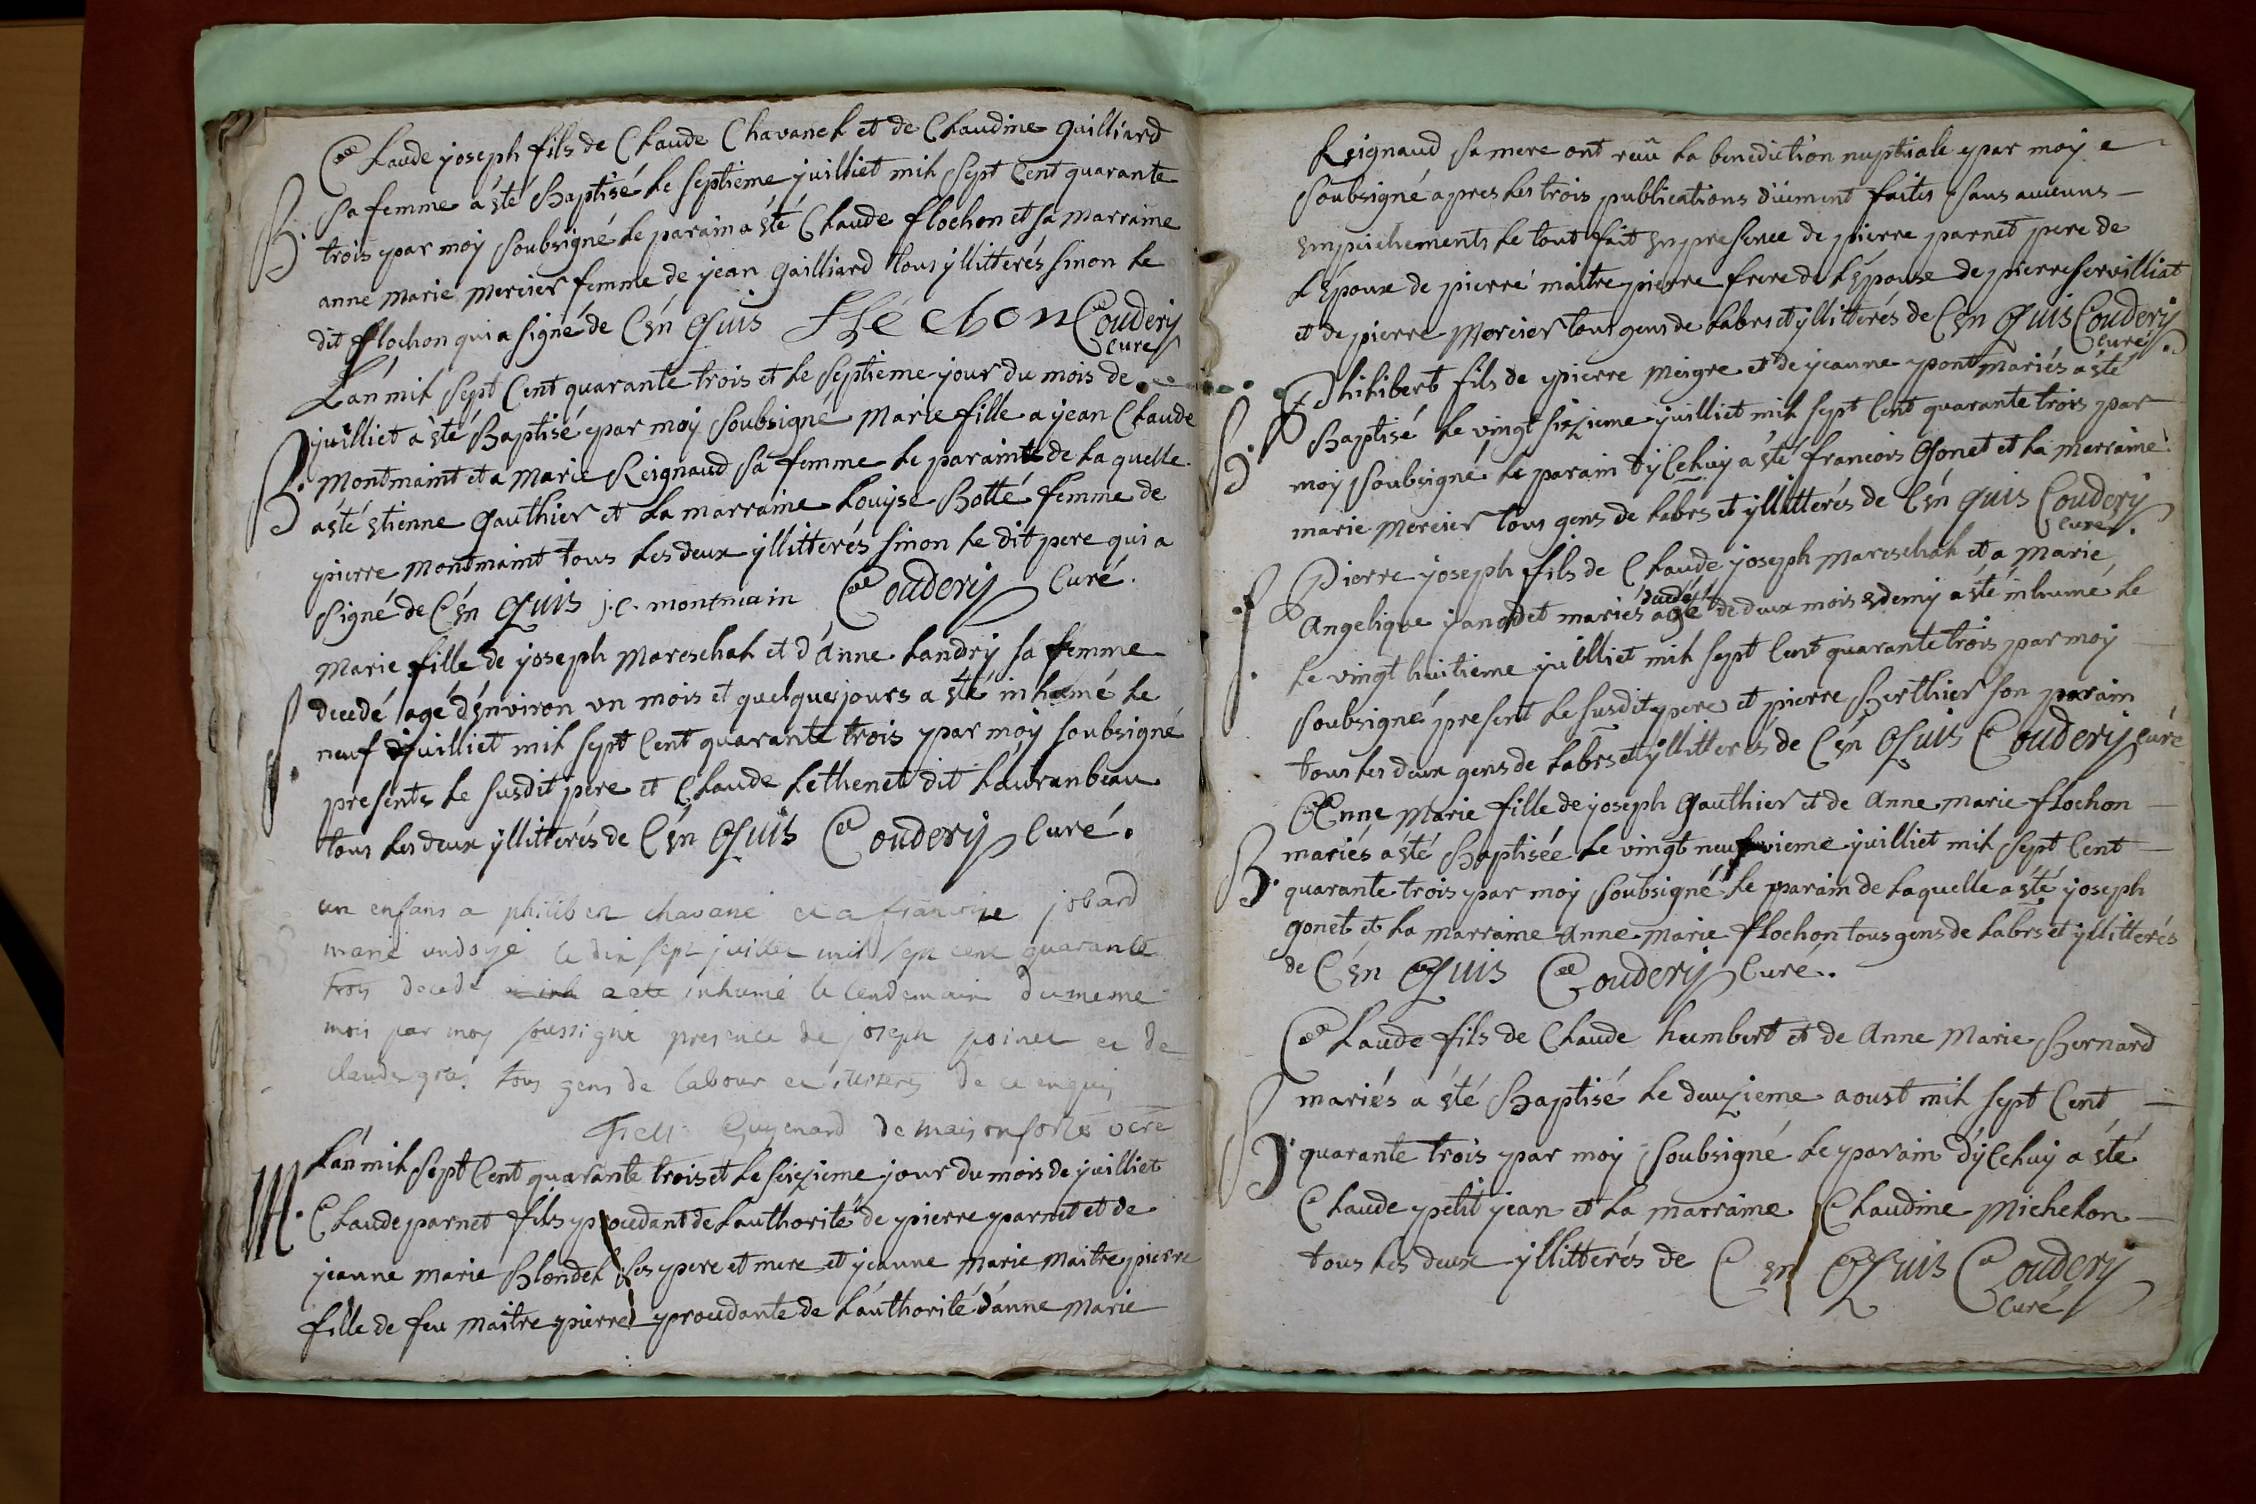 Claude joseph fils de Claude Chavanel et de Claudine guilliard
B. sa femme a êté Baptisé le septieme juilliet mil sept Cent quarante
trois par moy soubsigné le parain a êté Claude flochon et sa marraine
anne marie mercier femme de jean gailliard tous yllitterés sinon le
dit flochon qui a signé de Cén Quis Couderij
curé
L'an mil sept Cent quarante trois et le septieme jour du mois de
juilliet a êté Baptisé par moy soubsigné Marie fille a jean Claude
B. montmaint et a Marie Reignaud sa femme le parain de la quelle
a êté êtienne Gauthier et la marraine Louyse Botté femme de
pierre montmaint tous les deux yllitterés sinon le dit pere qui a
signé de Cén Quis j.c. montmain Couderij Curé.
Marie fille de joseph Mareschal et d'Anne Landry sa femme
decedé agé d'énviron un mois et quelques jours a êté inhumé le
neuf juilliet mil sept Cent quarante trois par moy soubsigné
presents le susdit pere et Claude Lethenet dit
tous les deux yllitterés de Cén Quis Couderij Curé.
un enfans a philiber chavane et a francoise jobard
marie undoyé le dix sept juillet mil sept cent quarante
trois decedé a eté inhumé le lendemain du meme
mois par moy soussigné presence de joseph poinet et de
claude tous gens de labour et illiteres de ce enquis
Guyenard
L'an mil sept Cent quarante trois et le seizieme jour du mois de juilliet
M. Claude parnet fils procedant de l'authorité de pierre parnet et de
jeanne marie Blondel ses pere et mere et jeanne Marie Maitrepierre
fille de feu maitre pierre procedante de l'authorité d'anne Marie
Reignaud sa mere ont reçu la benediction nuptiale par moy
soubsigné apres les trois publications duement faites sans aucuns
émpechements le tout fait én presence de pierre parnet pere de
l'époux de pierre maitre pierre frere de l'épouse de pierre servilliat
et de pierre mercier tous gens de labrs et yllitterés de Cén Quis Couderij
curé.
Philibert fils de pierre meigre et de jeanne pont mariés a êté
B. Baptisé le vingt sizieme juilliet mil sept Cent quarante trois par
moy soubsigné le parain d'yCeluy a êté francois Gonet et la marraine
marie mercier tous gens de labrs et yllitterés de Cén Quis Couderij
curé.
Pierre joseph fils de Claude joseph mareschal et a marie
decedé
Angelique jandet mariés agé de deux mois & demy a êté inhumé le
le vingt huitieme juilliet mil sept Cent quarante trois par moy
soubsigné present le susdit pere et pierre Berthier son parain
tous les deux gens de labrs et yllitterés de Cén Quis Couderij Curé
Anne Marie fille de joseph Gauthier et de Anne marie flochon
mariés a êté Baptisée le vingt neufvieme juilliet mil sept Cent
B. quarante trois par moy soubsigné le parain de laquelle a êté joseph
gonet et la marraine Anne marie flochon tous gens de labrs et yllitterés
de Cén Quis Couderij Curé.
Claude fils de Claude humbert et de Anne Marie Bernard
mariés a êté Baptisé le deuzieme aoust mil sept Cent
B. quarante trois par moy soubsigné le parain d'yCeluy a êté
Claude petit jean et la marraine Claudine Michelon
tous les deux yllitterés de Cén Quis Couderij
Curé